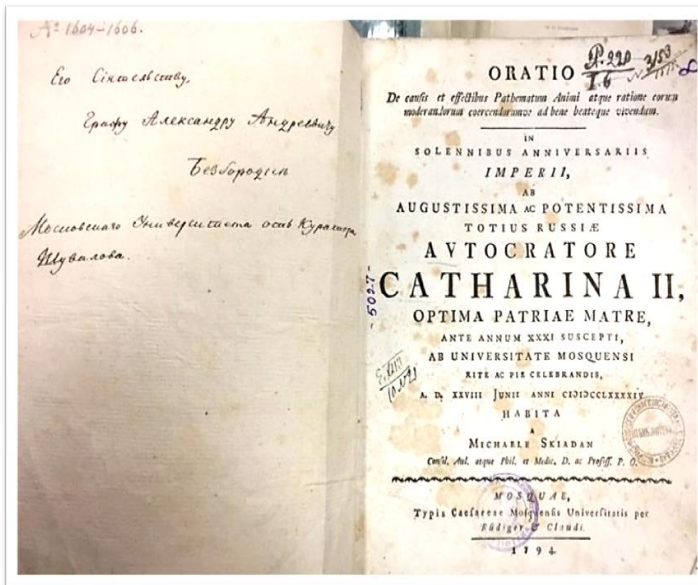 Aº 1604-1606.
Его Сіятельству,
Графу Александру Андреевичу
Безбородкѣ
Московскаго Университета отъ Куратора
Шувалова.
ORATIO
P. 220
I. 6
3153
8
De causis et effectibus Pathematum Animi atque ratione eorum
moderandorum coercendorumve ad bene beateque vivendum.
IN
SOLENNIBUS ANNIVERSARIIS
IMPERII,
AB
AUGUSTISSIMA AC POTENTISSIMA
TOTIUS RUSSIÆ
AVTOCRATORE
CATHARINA II,
OPTIMA PATRIAE MATRE,
ANTE ANNUM XXXI SUSCEPTI,
AB UNIVERSITATE MOSQUENSI
RITE AC PIE CELEBRANDIS,
A. D. XXVIII JUNII ANNI CIƆIƆCCLXXXXIV
HABITA
A
MICHAELE SKIADAN
Consil. Aul. atque Phil. et Medic. D. ac Professs. P. O.
MOSQUAE,
Typis Caesareae Mosquensis Universitatis per
Rüdiger & Claudi.
1794
-5027-